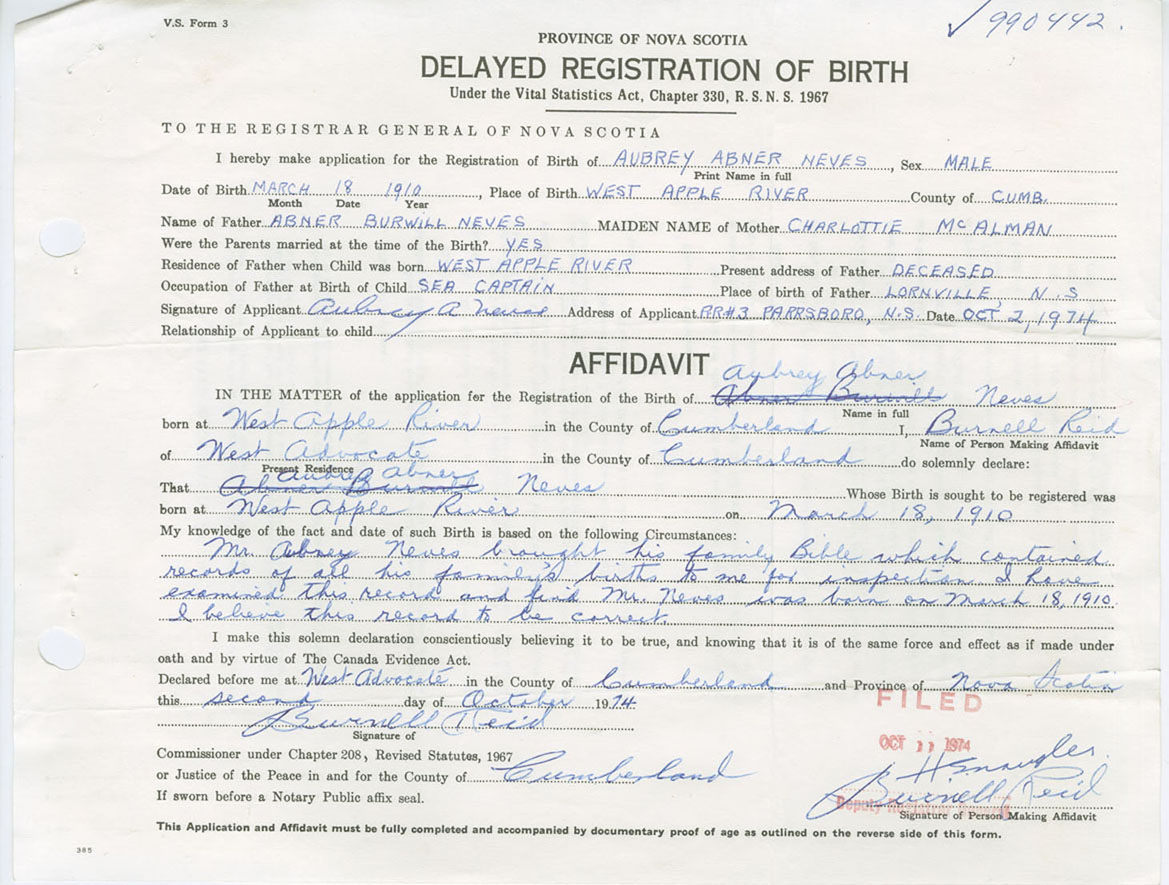 V.S. Form 3
✓990442.
PROVINCE OF NOVA SCOTIA
DELAYED REGISTRATION OF BIRTH
Under the Vital Statistics Act, Chapter 330, R.S.N.S. 1967
TO THE REGISTRAR GENERAL OF NOVA SCOTIA
I hereby make application for the Registration of Birth of AUBREY ABNER NEVES, Sex MALE
Print Name in full
Date of Birth MARCH 18 1910, Place of Birth WEST APPLE RIVER County of CUMB.
Month Date Year
Name of Father ABNER BURWILL NEVES MAIDEN NAME of Mother CHARLOTTIE McALMAN
Were the Parents married at the time of the Birth? YES
Residence of Father when Child was born WEST APPLE RIVER Present address of Father DECEASED
Occupation of Father at Birth of Child SEA CAPTAIN Place of birth of Father LORNVILLE, N.S
Signature of Applicant Aubrey A Neves Address of Applicant RR#3 PARRSBORO, N.S. Date OCT 2, 1974
Relationship of Applicant to child
AFFIDAVIT
Aubrey Abner
IN THE MATTER of the application for the Registration of the Birth of Abner Burwill Neves
Name in full
born at West Apple River in the County of Cumberland I, Burnell Reid
Name of Person Making Affidavit
of West Advocate in the County of Cumberland do solemnly declare:
Present Residence
Aubrey Abner
That Abner Burwill Neves Whose Birth is sought to be registered was
born at West Apple River on March 18, 1910
My knowledge of the fact and date of such Birth is based on the following Circumstances:
Mr. Neves brought his family Bible which contained
records of all his family's births to me for inspection. I have
examined this record and find Mr. Neves was born on March 18, 1910.
I believe this record to be correct.
I make this solemn declaration conscientiously believing it to be true, and knowing that it is of the same force and effect as if made under
oath and by virtue of The Canada Evidence Act.
Declared before me at West Advocate in the County of Cumberland and Province of Nova Scotia
this second day of October 1974.
FILED
Burnell Reid
Signature of
OCT 11 1974
Commissioner under Chapter 208, Revised Statutes, 1967
or Justice of the Peace in and for the County of Cumberland
Burnell Reid
If sworn before a Notary Public affix seal.
Deputy
Signature of Person Making Affidavit
This Application and Affidavit must be fully completed and accompanied by documentary proof of age as outlined on the reverse side of this form.
385